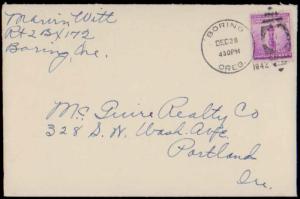 Marvin Witt
Rt 2 Bx 172
Boring, Ore.
BORING
DEC 28
430PM
1942
OREG.
Mc Guire Realty Co
328 S. W. Wash. Ave.
Portland
Ore.